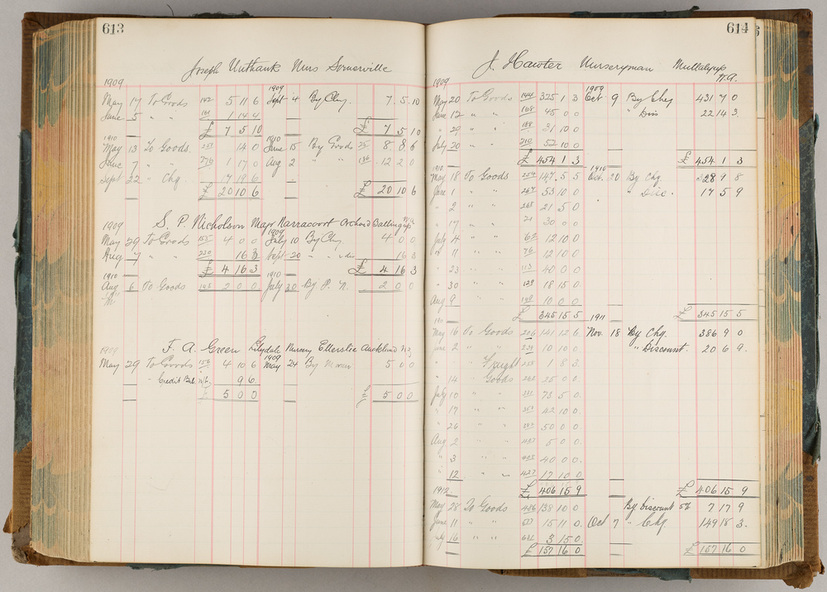 613
Joseph Unthank Nurs Somerville
1909 1909
May 17 To Goods 5 11 6 Sept 4 By Chq 7. 5. 10
June 5 " " 1 14 4
£ 7 5 10 £ 7 5 10
1910 1910
May 13 To Goods 14 0 June 15 By Goods 8 8 6
June 7 " 1 17 0 Aug 2 " " 12 2 0
Sept 22 " Chq 17 19 6
£ 20 10 6 £ 20 10 6
1909 S. P. Nicholson Major Narracoort Orchard
1909
May 29 To Goods 4 0 0 July 10 By Chq 4 0 0
Aug 7 " 16 3 Sept 20 " " 16 3
£ 4 16 3 £ 4 16 3
1910 1910
Aug 6 To Goods 2 0 0 July 30 By P. N. 2 0 0
1909 F. A. Green Lilydale Nursery Ellerslie Auckland N.Z.
1909
May 29 To Goods 4 10 6 May 24 By 5 0 0
" Credit Bal 9 6
£ 5 0 0 £ 5 0 0
614
J. Hawter Nurseryman Mullalyup W.A.
1909 1909
May 20 To Goods 325 1 3 Oct 9 By Chq 431 7 0
June 12 " " 45 0 0 " Dis 22 14 3
" 29 " " 31 10 0
July 20 " " 52 10 0
£ 454 1 3 £ 454 1 3
1910 1910
May 18 To Goods 147 5 5 Oct 20 By Chq 328 9 8
June 1 " " 53 10 0 " Disc. 17 5 9
" 2 " " 21 5 0
" 17 " " 30 0 0
July 4 " " 12 10 0
" 11 " " 12 10 0
" 23 " " 40 0 0
" 30 " " 18 15 0
Aug 9 " " 10 0 0
£ 345 15 5 £ 345 15 5
1911 1911
May 16 To Goods 141 12 6 Nov. 18 By Chq. 386 9 0
June 2 " " 10 10 0 " Discount 20 6 9
" Freight 1 8 3
" 14 " Goods 25 0 0
July 10 " " 73 5 0
" 17 " " 42 10 0
" 26 " " 50 0 0
Aug 2 " " 5 0 0
" 3 " " 40 0 0
" 12 " " 17 10 0
£ 406 15 9 £ 406 15 9
1912
May 28 To Goods 138 10 0 By Discount 5% 7 17 9
June 11 " " 15 11 0 Oct 7 " Chq 149 18 3
July 16 " " 3 15 0
£ 157 16 0 £ 157 16 0